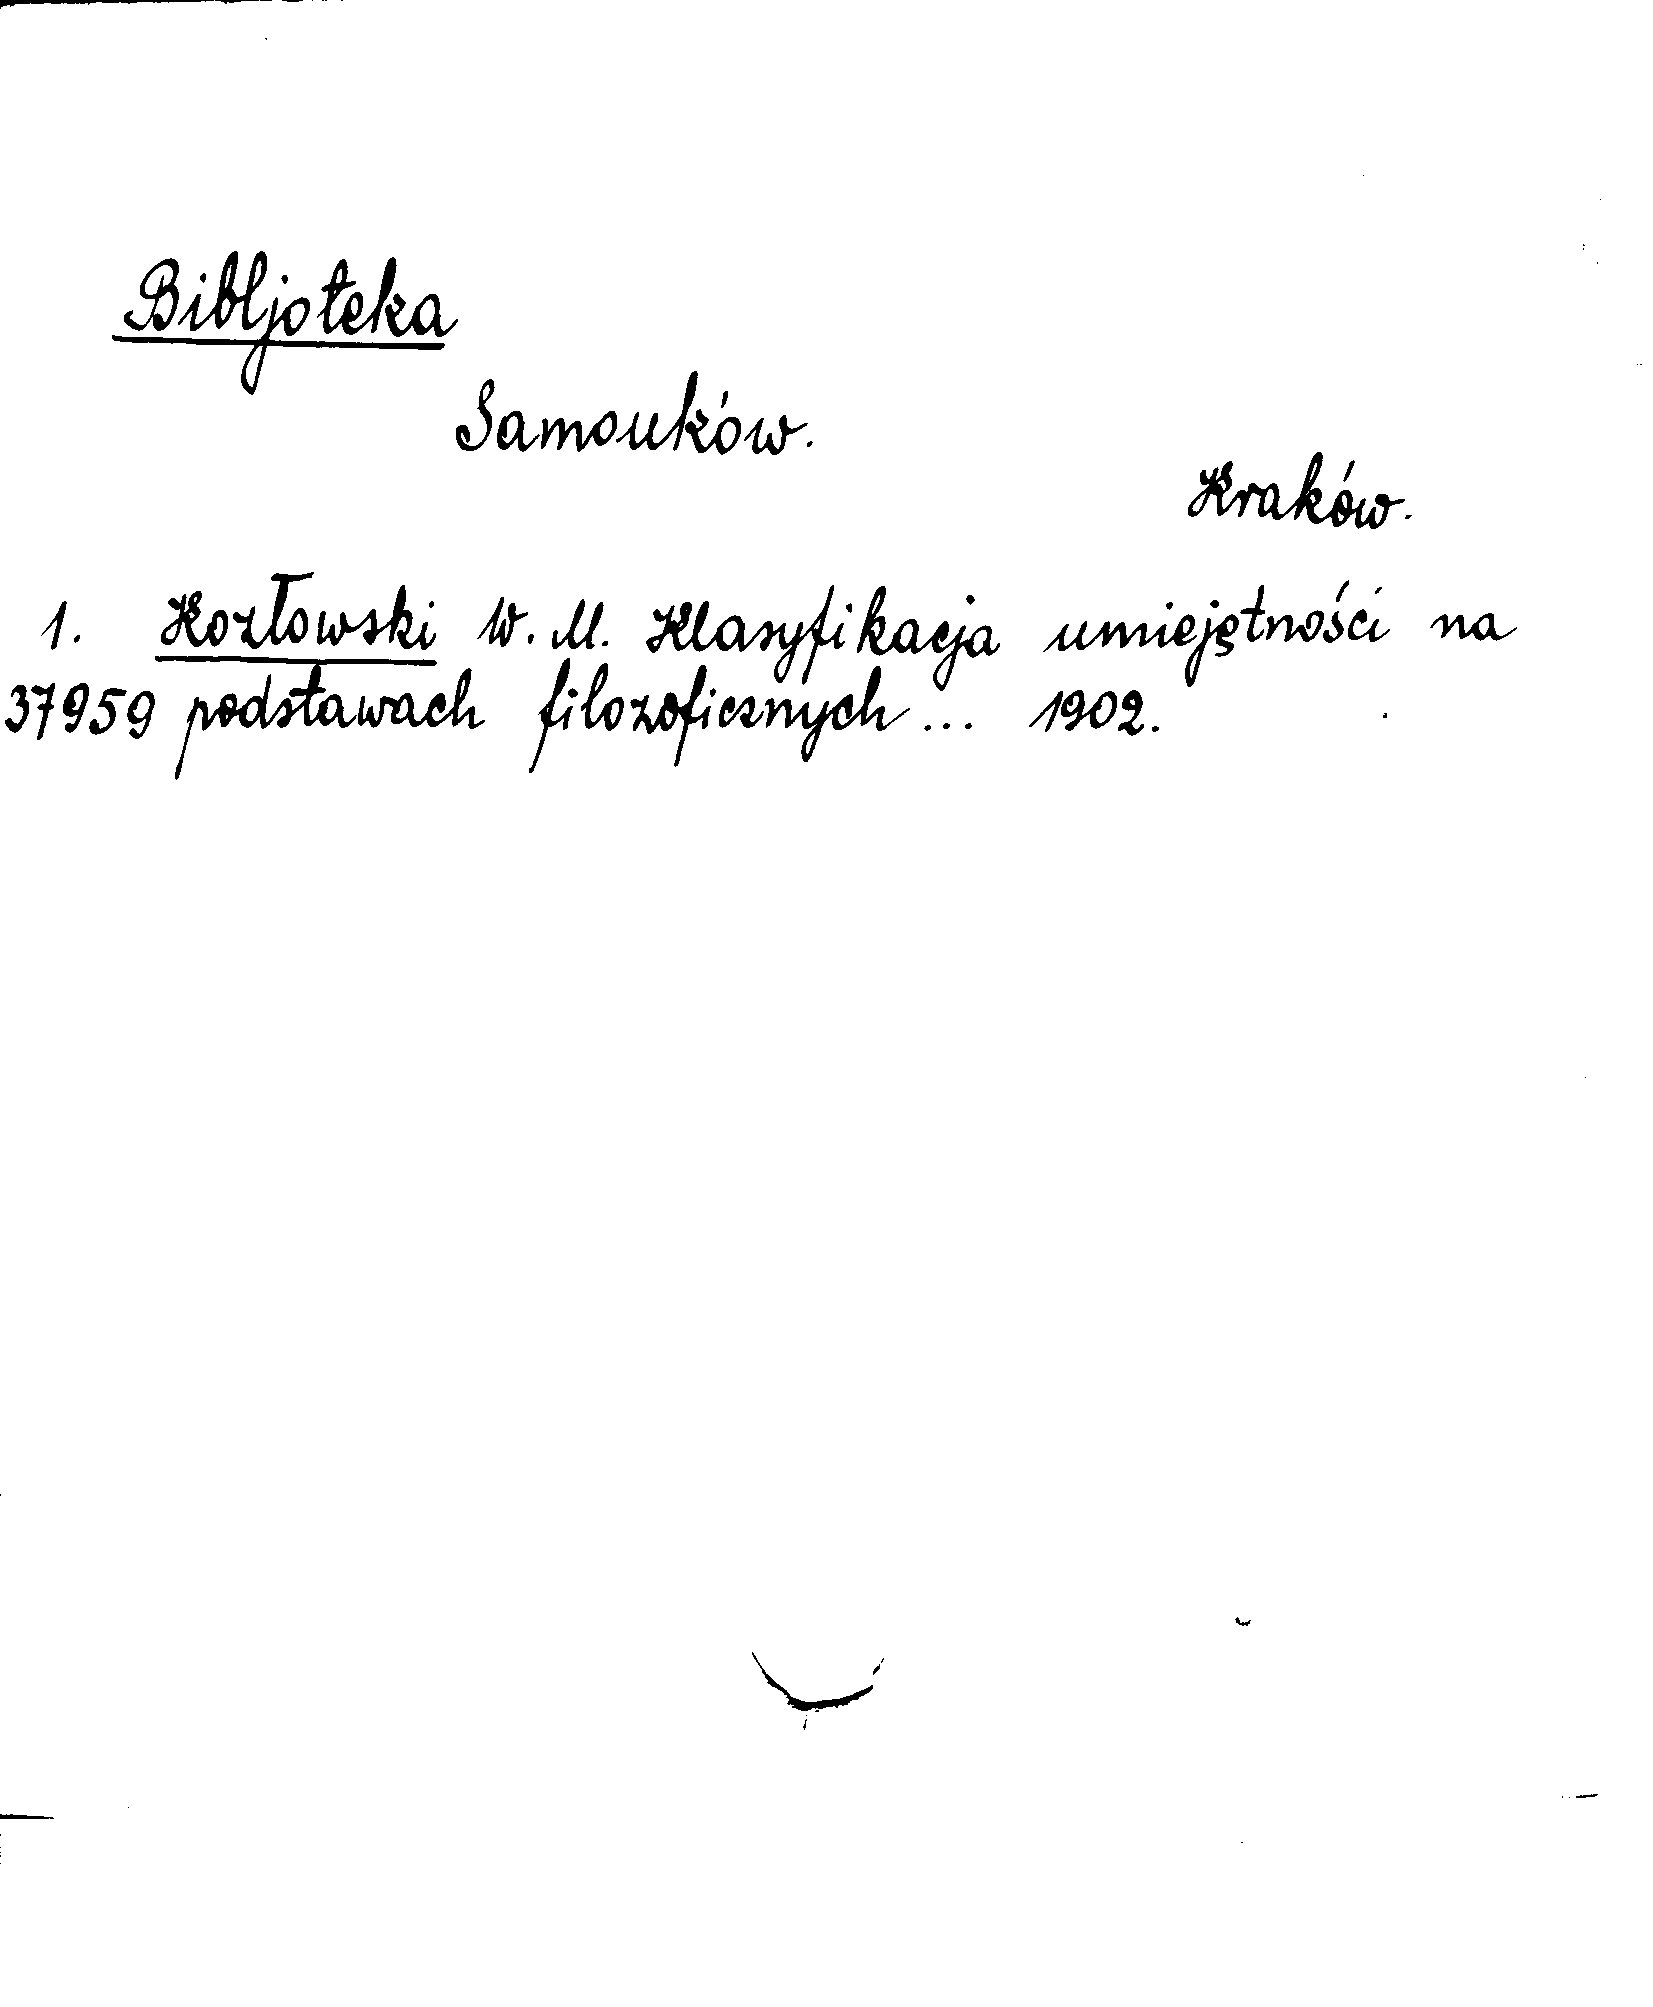 Bibljoteka
Samouków.
Kraków.
1. Kozłowski W. M. Klasyfikacja umiejętności na
37959 podstawach filozoficznych... 1902.